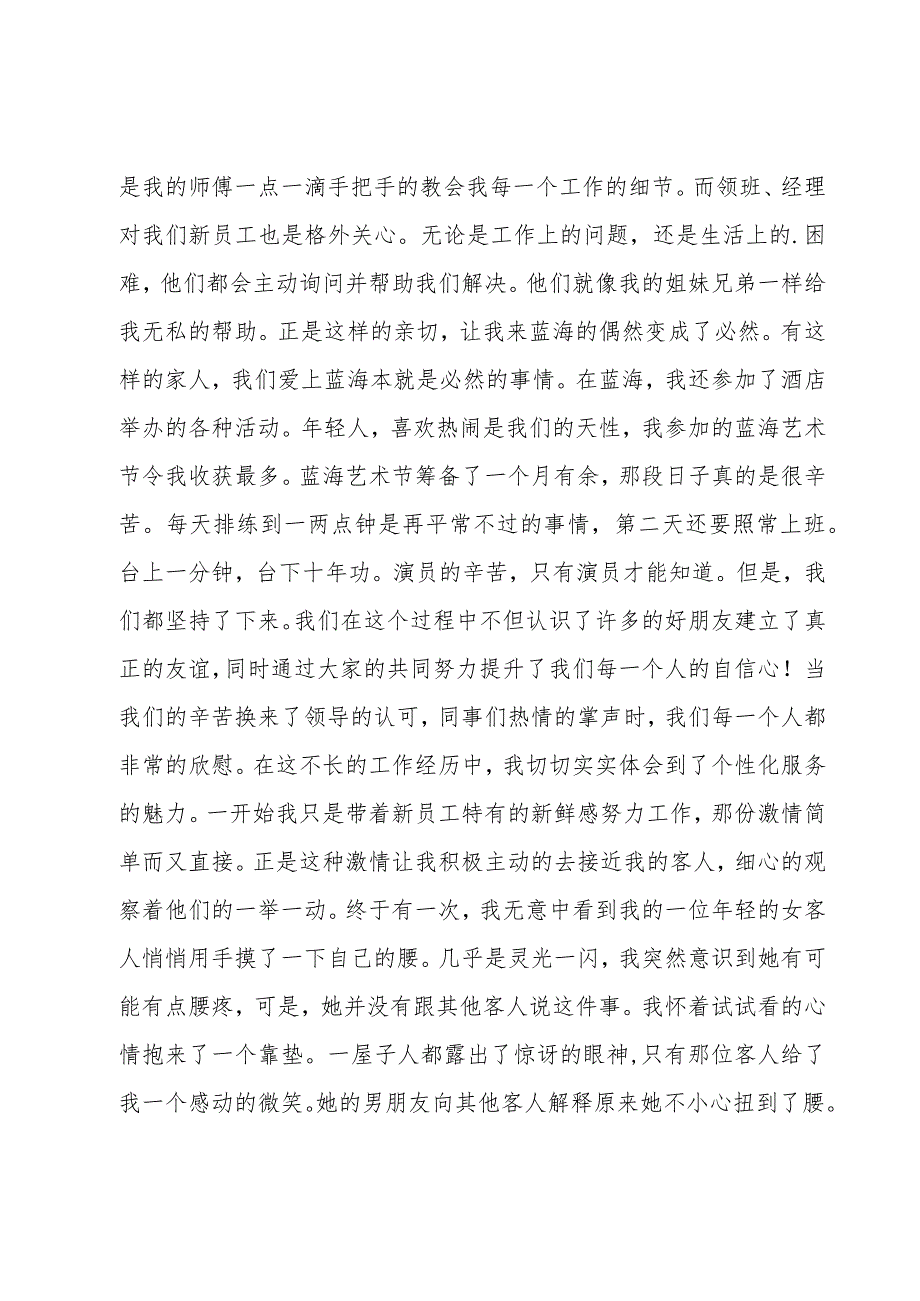 是我的师傅一点一滴手把手的教会我每一个工作的细节。而领班、经理
对我们新员工也是格外关心。无论是工作上的问题，还是生活上的.困
难，他们都会主动询问并帮助我们解决。他们就像我的姐妹兄弟一样给
我无私的帮助。正是这样的亲切，让我来蓝海的偶然变成了必然。有这
样的家人，我们爱上蓝海本就是必然的事情。在蓝海，我还参加了酒店
举办的各种活动。年轻人，喜欢热闹是我们的天性，我参加的蓝海艺术
节令我收获最多。蓝海艺术节筹备了一个月有余，那段日子真的是很辛
苦。每天排练到一两点钟是再平常不过的事情，第二天还要照常上班。
台上一分钟，台下十年功。演员的辛苦，只有演员才能知道。但是，我
们都坚持了下来。我们在这个过程中不但认识了许多的好朋友建立了真
正的友谊，同时通过大家的共同努力提升了我们每一个人的自信心！当
我们的辛苦换来了领导的认可，同事们热情的掌声时，我们每一个人都
非常的欣慰。在这不长的工作经历中，我切切实实体会到了个性化服务
的魅力。一开始我只是带着新员工特有的新鲜感努力工作，那份激情简
单而又直接。正是这种激情让我积极主动的去接近我的客人，细心的观
察着他们的一举一动。终于有一次，我无意中看到我的一位年轻的女客
人悄悄用手摸了一下自己的腰。几乎是灵光一闪，我突然意识到她有可
能有点腰疼，可是，她并没有跟其他客人说这件事。我怀着试试看的心
情抱来了一个靠垫。一屋子人都露出了惊讶的眼神,只有那位客人给了
我一个感动的微笑。她的男朋友向其他客人解释原来她不小心扭到了腰。